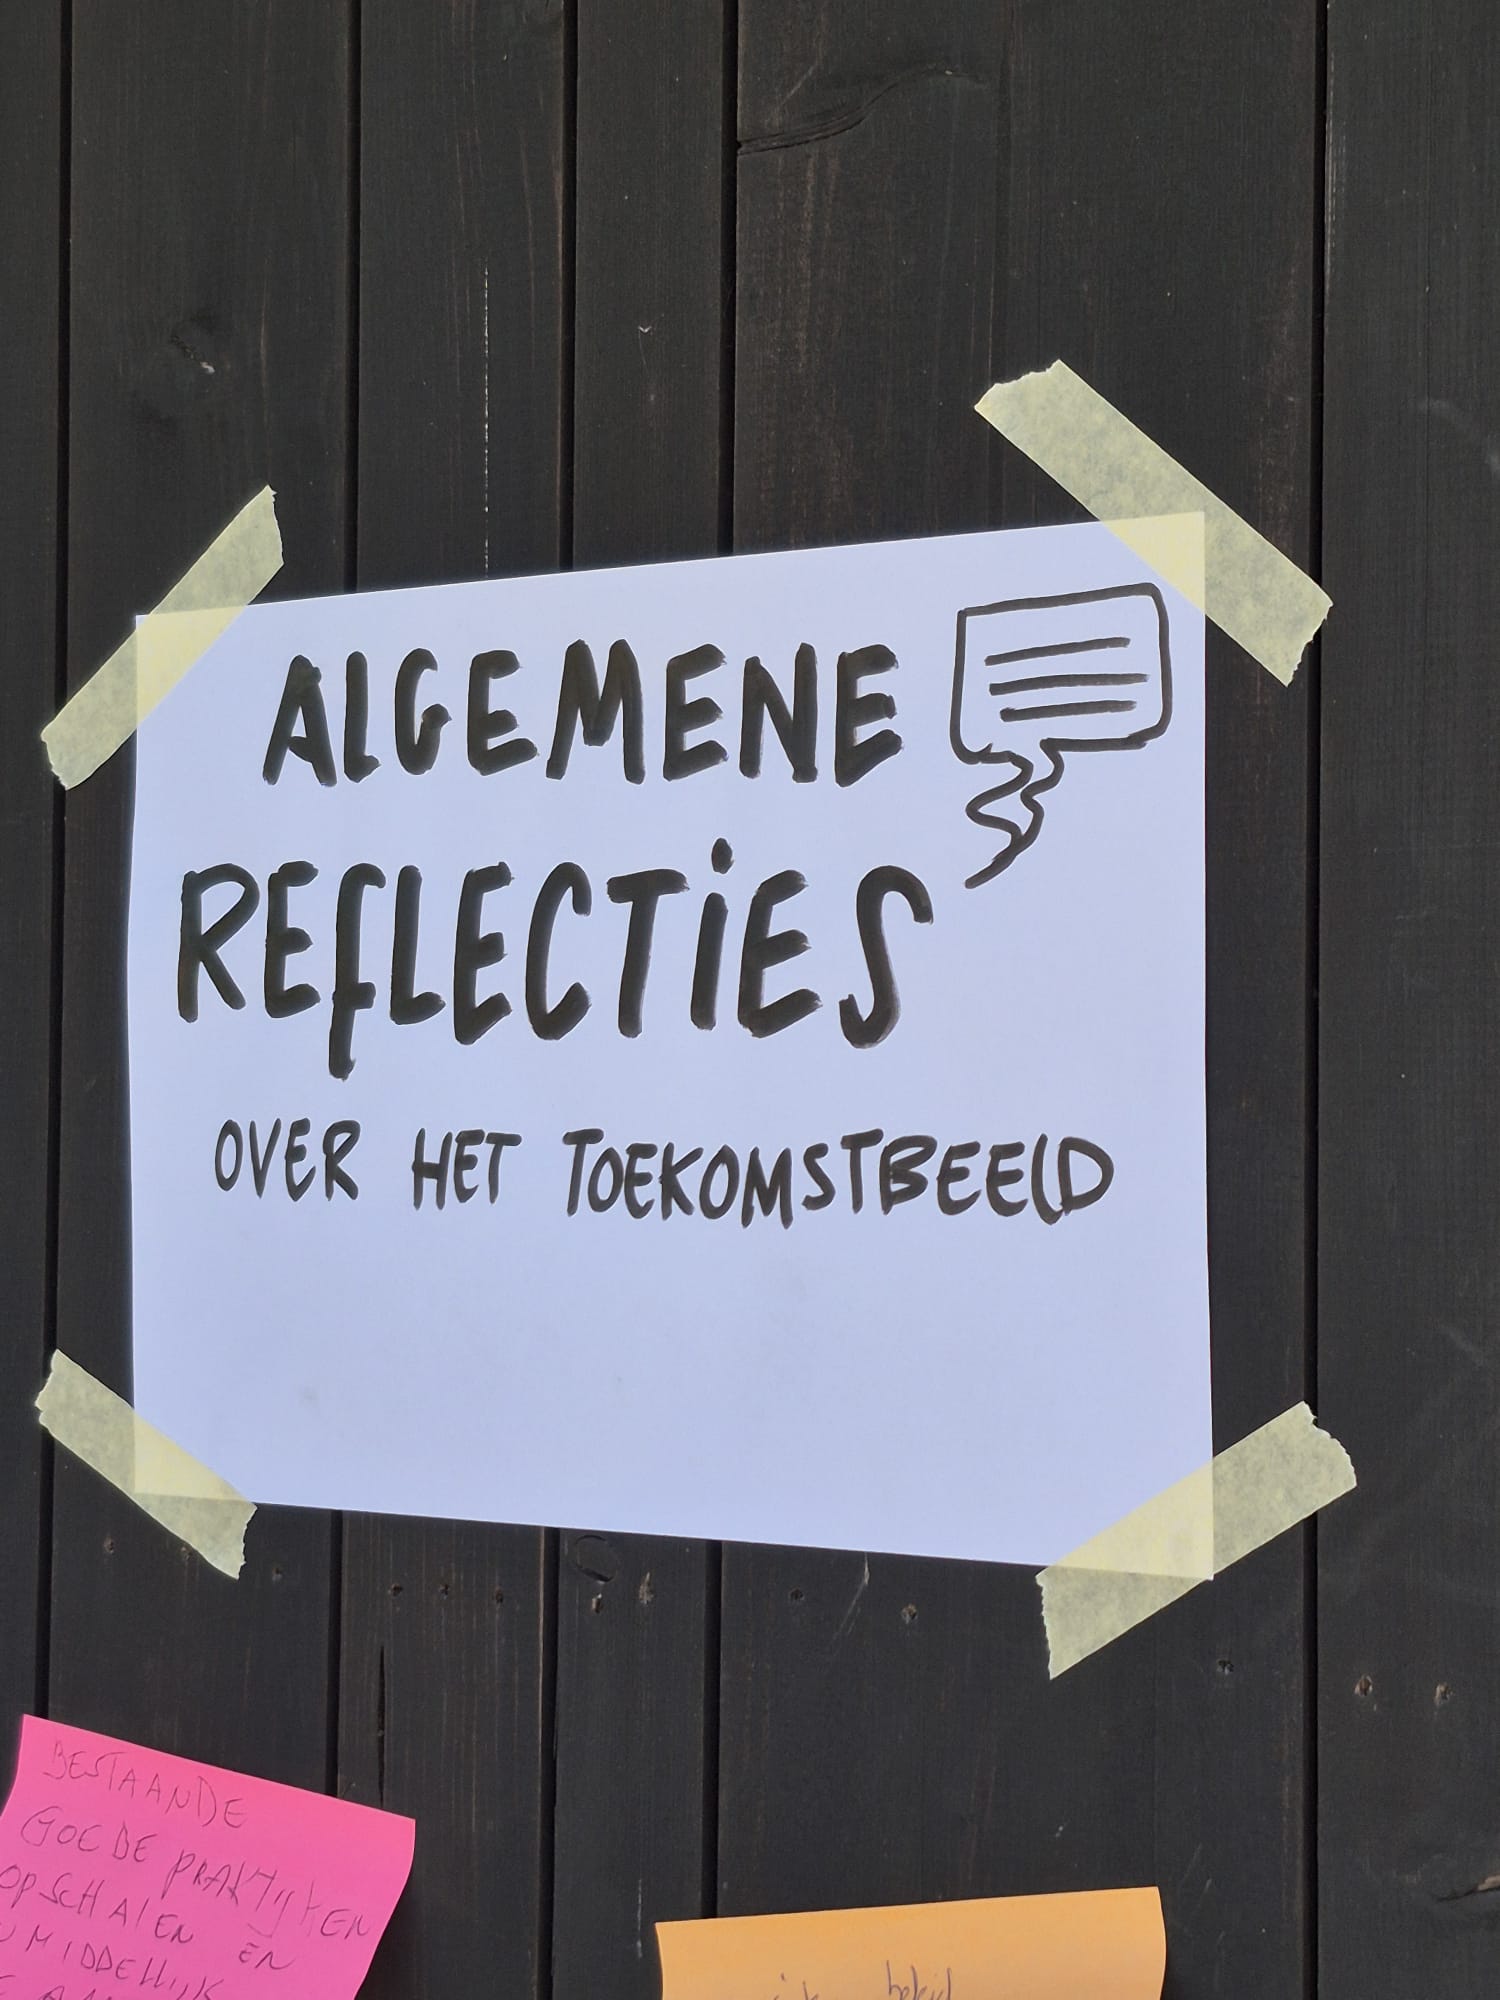 ALGEMENE
REFLECTIES
OVER HET TOEKOMSTBEELD
BESTAANDE
GOEDE PRAKTIJKEN
OPSCHALEN EN
beleid